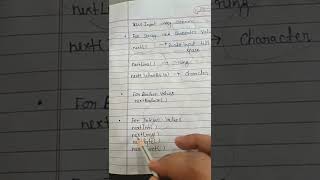 User Input using Scanner
For String and Character Value
next() → Inside input till
space
nextLine() → String
next().charAt(0) → Character
For Boolean Values
nextBoolean()
For Integer Values
nextInt()
nextLong()
nextByte()
nextShort()
ring
next( → Character